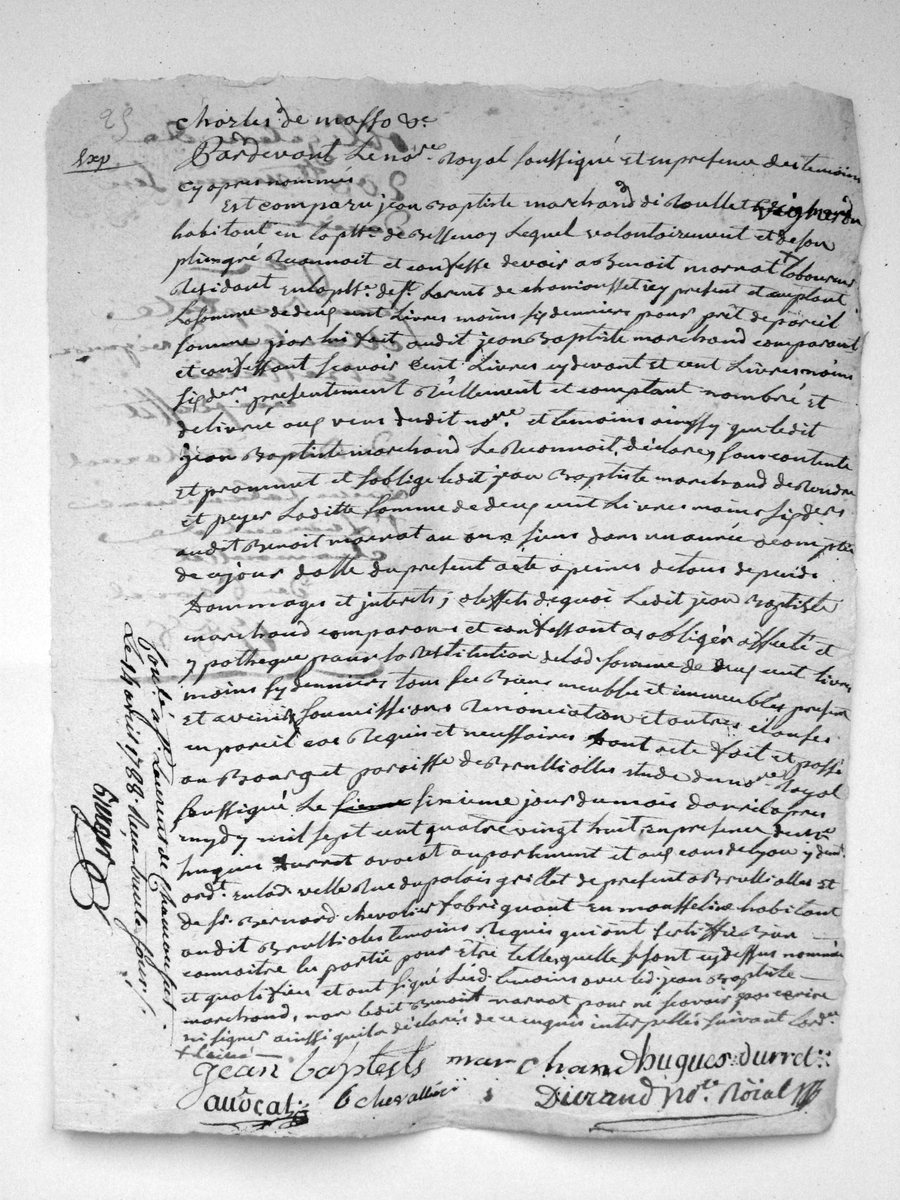 25
charles de masso &c
Exp Pardevant Le no.re Royal soussigné Et en presence des temoins
cy apres nommés
Est comparu jean Baptiste marchand di Roullet vigneron
habitant en la p.sse de Bessenay Lequel volontairement et de son
plin gré Reconnoit et confesse devoir a Benoit marnat + laboureur
Residant En la p.sse de st Laurent de chamousset icy present et acceptant
La somme de deux cent Livres moins six denniers pour prêt de pareil
somme par lui fait audit jean Baptiste marchand comparant
et confessant scavoir cent Livres cy devant et cent Livres moins
six den.rs presentement Réellement et comptant nombré et
delivrée aux veus dudit no.re et temoins ainssy que ledit
jean Baptiste marchand Le Reconnoit, declare, sans contente
Et prommet et s'oblige ledit jean Baptiste marchand de Rendre
et peyer Laditte somme de deux cent Livres moins six ders
audit Benoit marnat ou aux siens dans un année a compter
de ce jour datte du present acte a peines de tous depends
Dommages et interets; a l'effets de quoi Ledit jean Baptiste
marchand comparans et confessant a obligér affecté et
ypothequé pour la Restitution de lad. somme de deux cent livres
moins six denniers tous ses Biens meubles et immeubles present
Et avenir, soumissions Renonciation et autres clauses
en pareil cas Requis et necessaires Dont acte fait et passé
au Bourg et paroisse de Brullioles étude du no.re Royal
soussigné Le sixieme jour du mois d'avril apres
mydy mil sept cent quatre vingt huit, en presence de m.e
hugues Durret avocat au parlement et aux cours de Lyon y dem.t
ord.t en lad. ville Rue du palais grillet de present a Brullioles Et
De Sr. Bernard chevalier fabriquant en mousseline habitant
audit Brullioles temoins Requis qui ont certiffié Bien
connoitre les partie pour être telle, quelle sont cy dessus nommée
et qualifiés et ont signé Lesd. temoins avec led jean Baptiste
marchand, non ledit Benoit marnat pour ne scavoir pas ecrire
ni signer ainssi quil a declarés de ce enquis interpellés suivant L'ord.ce
+ L'ainé
jean baptests marchand hugues durret
avocat B chevallier Durand No.re Roial
Conté a St Laurent de Chamousset
Le 11 avril 1788. Reçu trente sous
Guyot